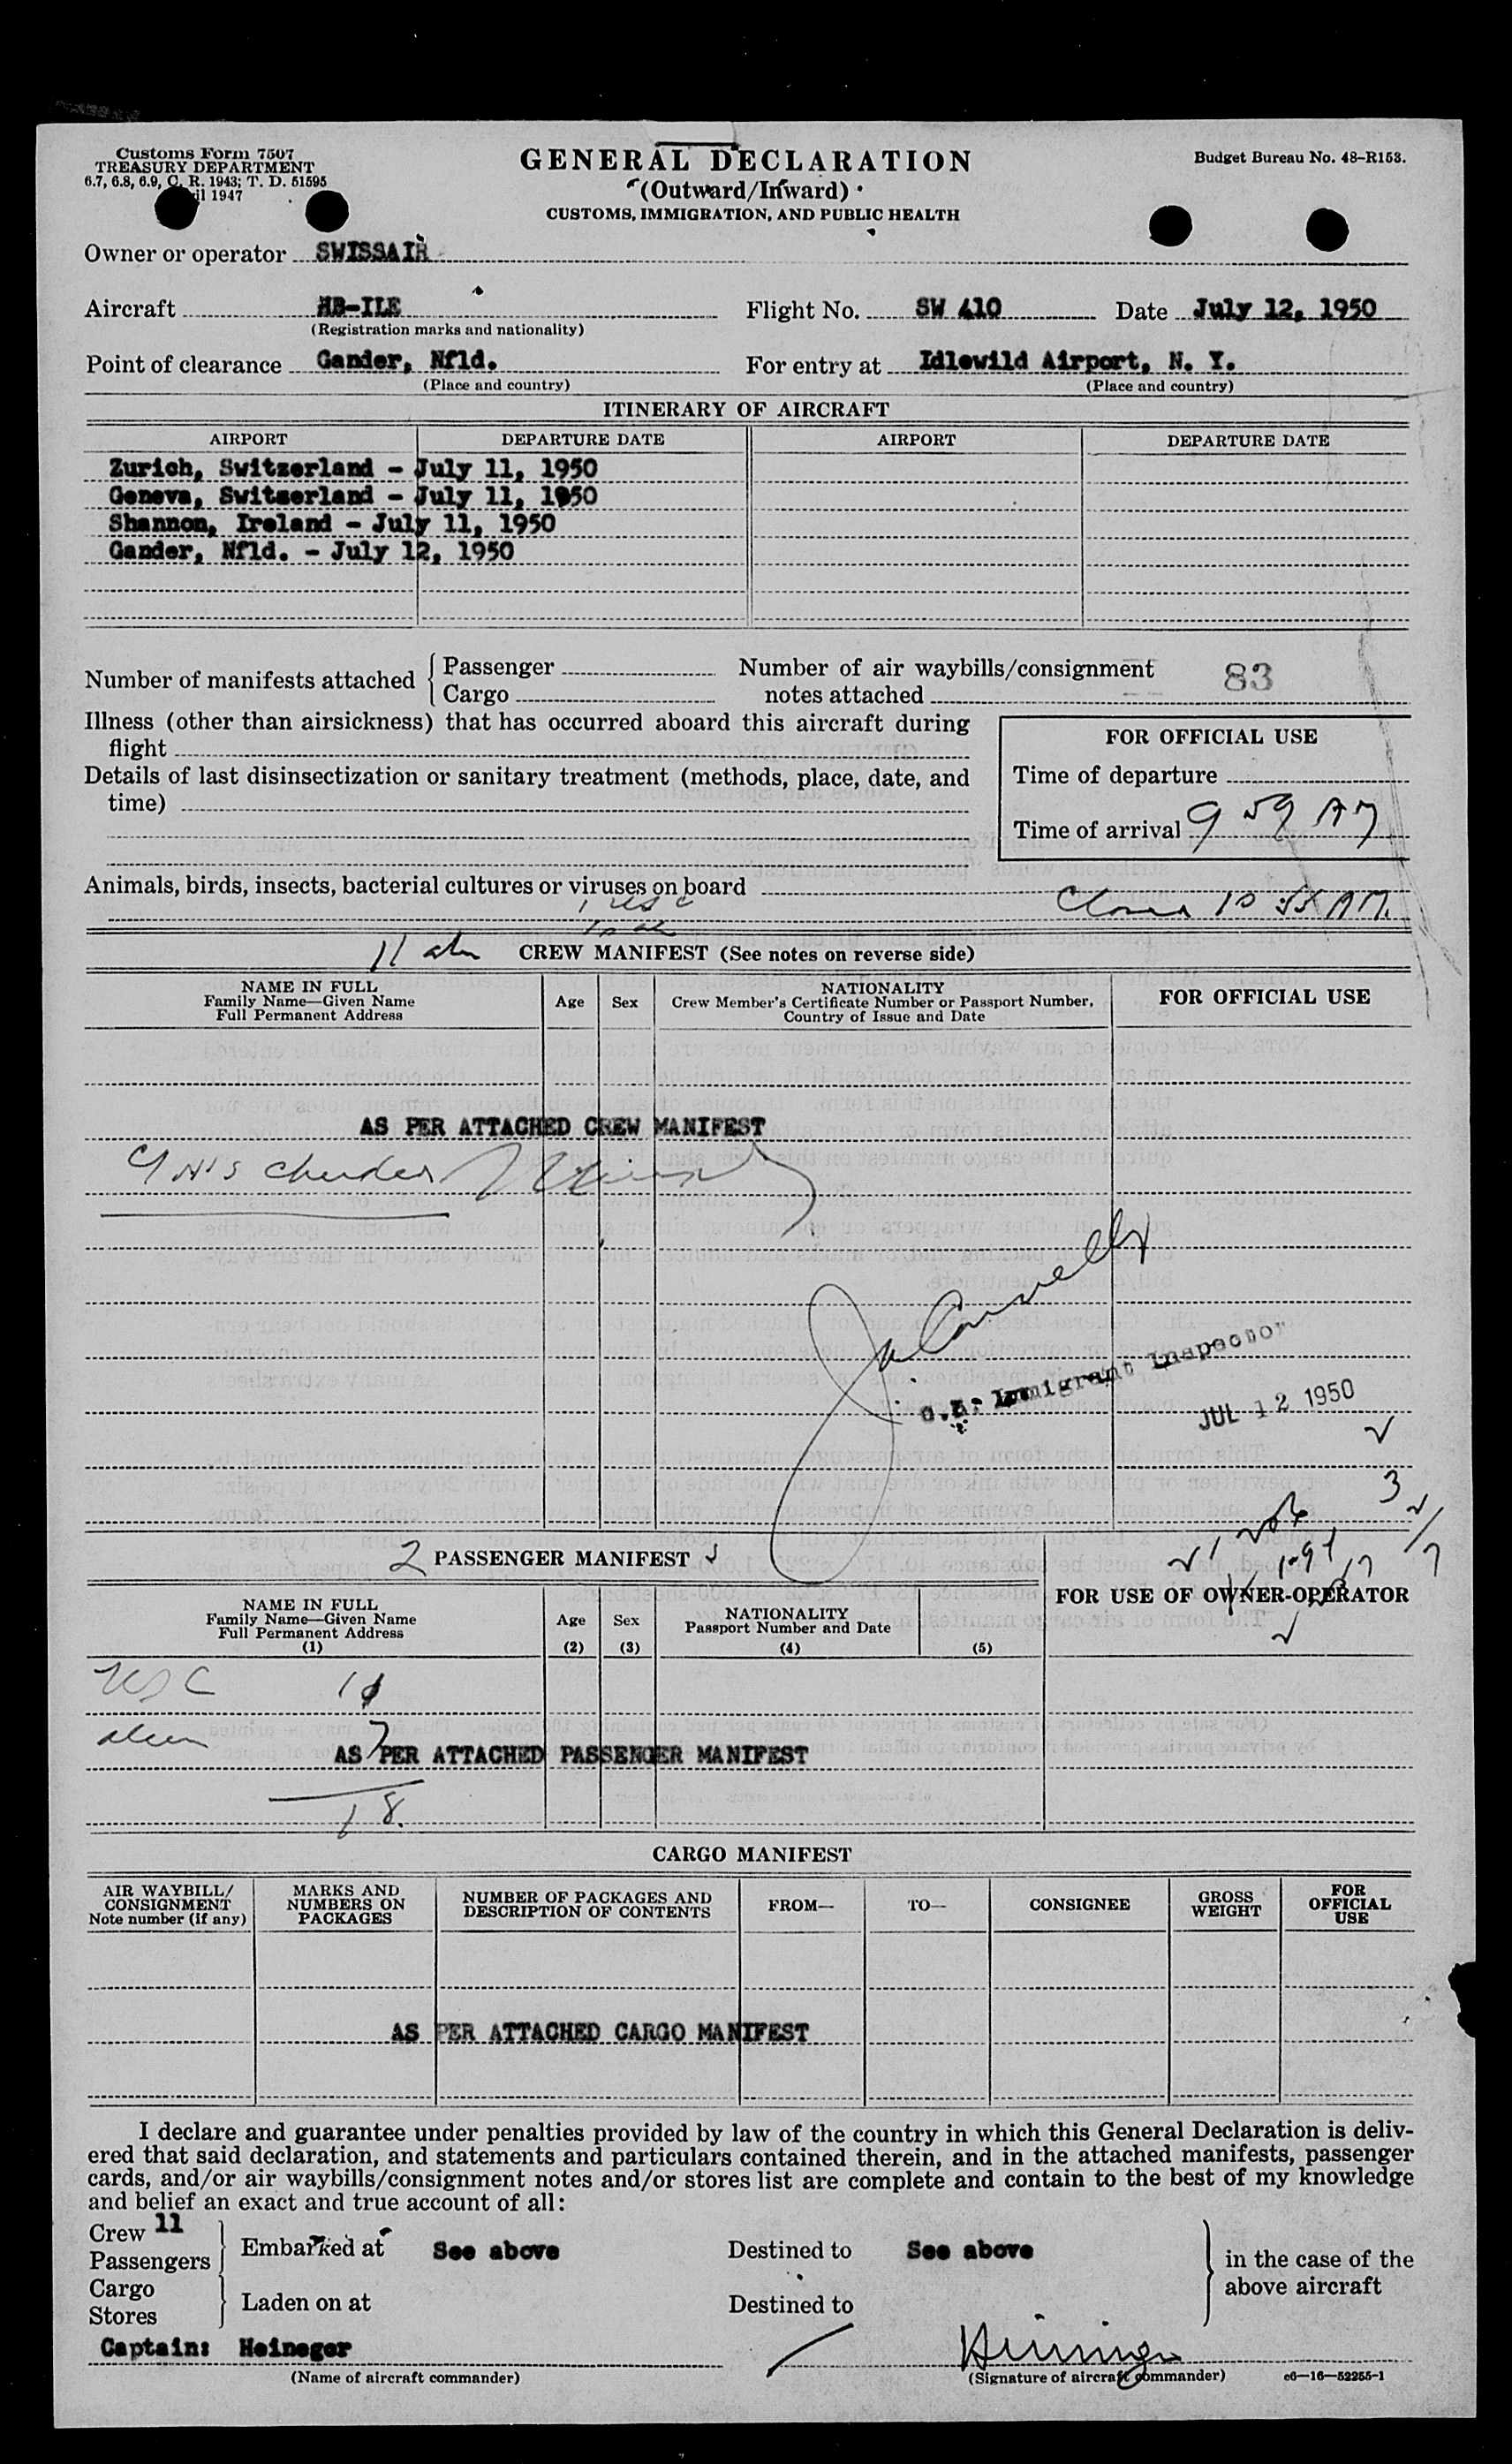 Customs Form 7507
TREASURY DEPARTMENT
6.7, 6.8, 6.9, C. R. 1943; T. D. 51595
il 1947
GENERAL DECLARATION
(Outward/Inward)
CUSTOMS, IMMIGRATION, AND PUBLIC HEALTH
Budget Bureau No. 48-R153.
Owner or operator SWISSAIR
Aircraft HB-ILE Flight No. SW 410 Date July 12, 1950
(Registration marks and nationality)
Point of clearance Gander, Nfld. For entry at Idlewild Airport, N. Y.
(Place and country) (Place and country)
ITINERARY OF AIRCRAFT
AIRPORT DEPARTURE DATE AIRPORT DEPARTURE DATE
Zurich, Switzerland - July 11, 1950
Geneva, Switzerland - July 11, 1950
Shannon, Ireland - July 11, 1950
Gander, Nfld. - July 12, 1950
Number of manifests attached { Passenger Number of air waybills/consignment 83
Cargo notes attached
Illness (other than airsickness) that has occurred aboard this aircraft during
flight
FOR OFFICIAL USE
Details of last disinsectization or sanitary treatment (methods, place, date, and
time)
Time of departure
Time of arrival 9 59 AM
Animals, birds, insects, bacterial cultures or viruses on board
1 USC
10 55 AM.
11 CREW MANIFEST (See notes on reverse side)
NAME IN FULL
Family Name—Given Name
Full Permanent Address
Age Sex
NATIONALITY
Crew Member's Certificate Number or Passport Number,
Country of Issue and Date
FOR OFFICIAL USE
AS PER ATTACHED CREW MANIFEST
Immigrant Inspector
JUL 12 1950
3
2 PASSENGER MANIFEST
FOR USE OF OWNER-OPERATOR
NAME IN FULL
Family Name—Given Name
Full Permanent Address
(1)
Age
(2)
Sex
(3)
NATIONALITY
Passport Number and Date
(4) (5)
USC 11
7
AS PER ATTACHED PASSENGER MANIFEST
18.
CARGO MANIFEST
AIR WAYBILL/
CONSIGNMENT
Note number (if any)
MARKS AND
NUMBERS ON
PACKAGES
NUMBER OF PACKAGES AND
DESCRIPTION OF CONTENTS
FROM— TO— CONSIGNEE
GROSS
WEIGHT
FOR
OFFICIAL
USE
AS PER ATTACHED CARGO MANIFEST
I declare and guarantee under penalties provided by law of the country in which this General Declaration is deliv-
ered that said declaration, and statements and particulars contained therein, and in the attached manifests, passenger
cards, and/or air waybills/consignment notes and/or stores list are complete and contain to the best of my knowledge
and belief an exact and true account of all:
Crew 11
Passengers
Embarked at See above Destined to See above
in the case of the
above aircraft
Cargo
Stores
Laden on at Destined to
Captain: Heineger
(Name of aircraft commander) (Signature of aircraft commander) c6—16—52255-1